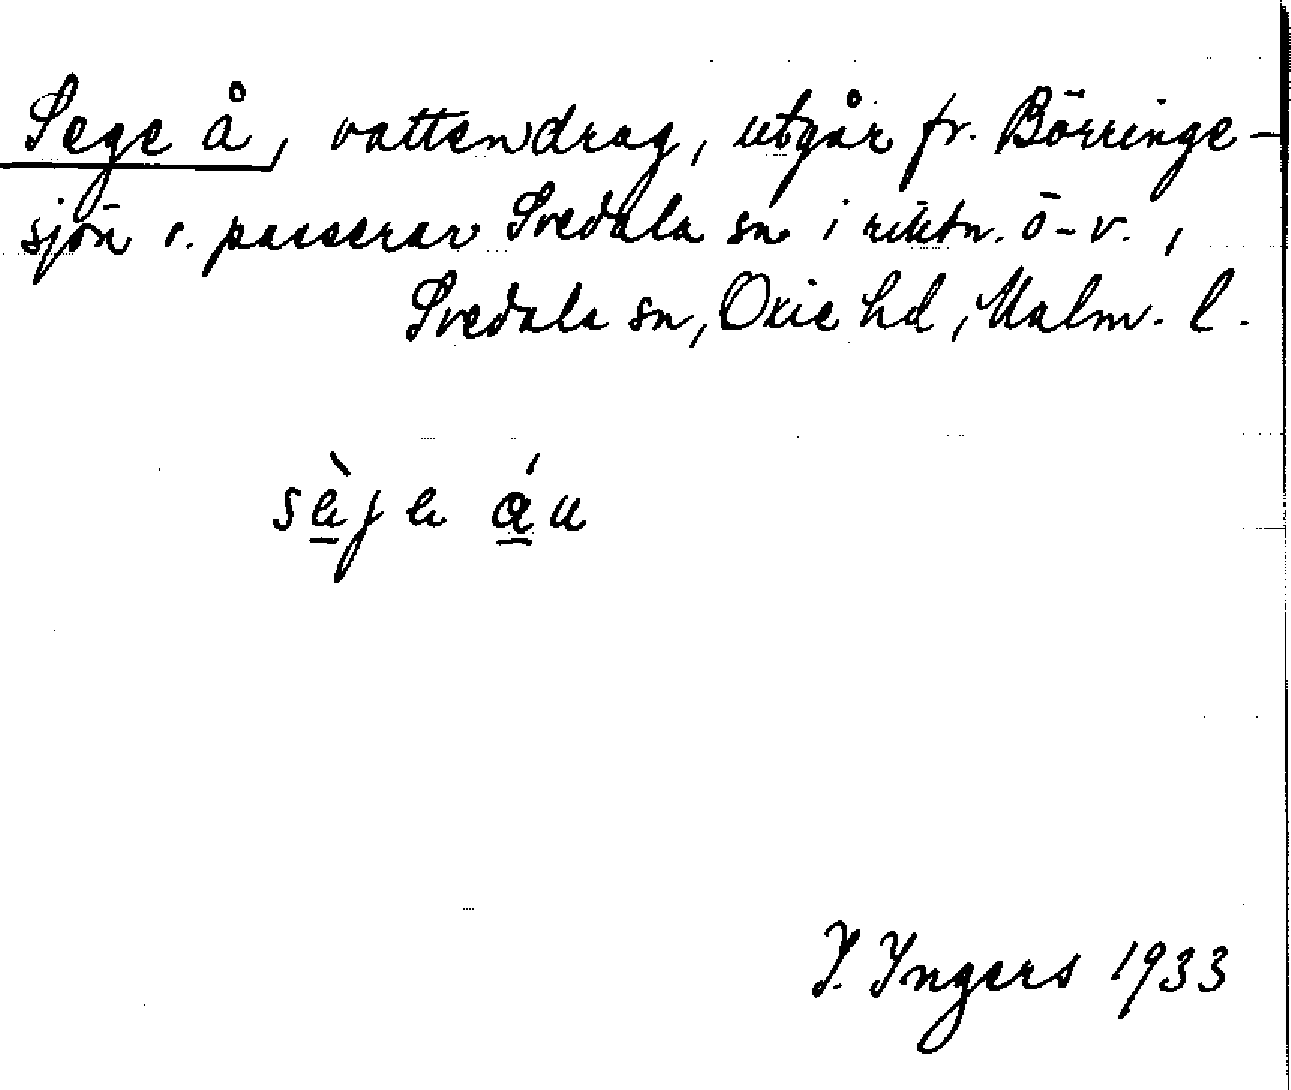 Sege å, vattendrag, utgår fr. Börringe-
sjön o. passerar Svedala sn i riktn. ö-v.,
Svedala sn, Oxie hd, Malm. l.
sèje áu
I. Ingers 1933